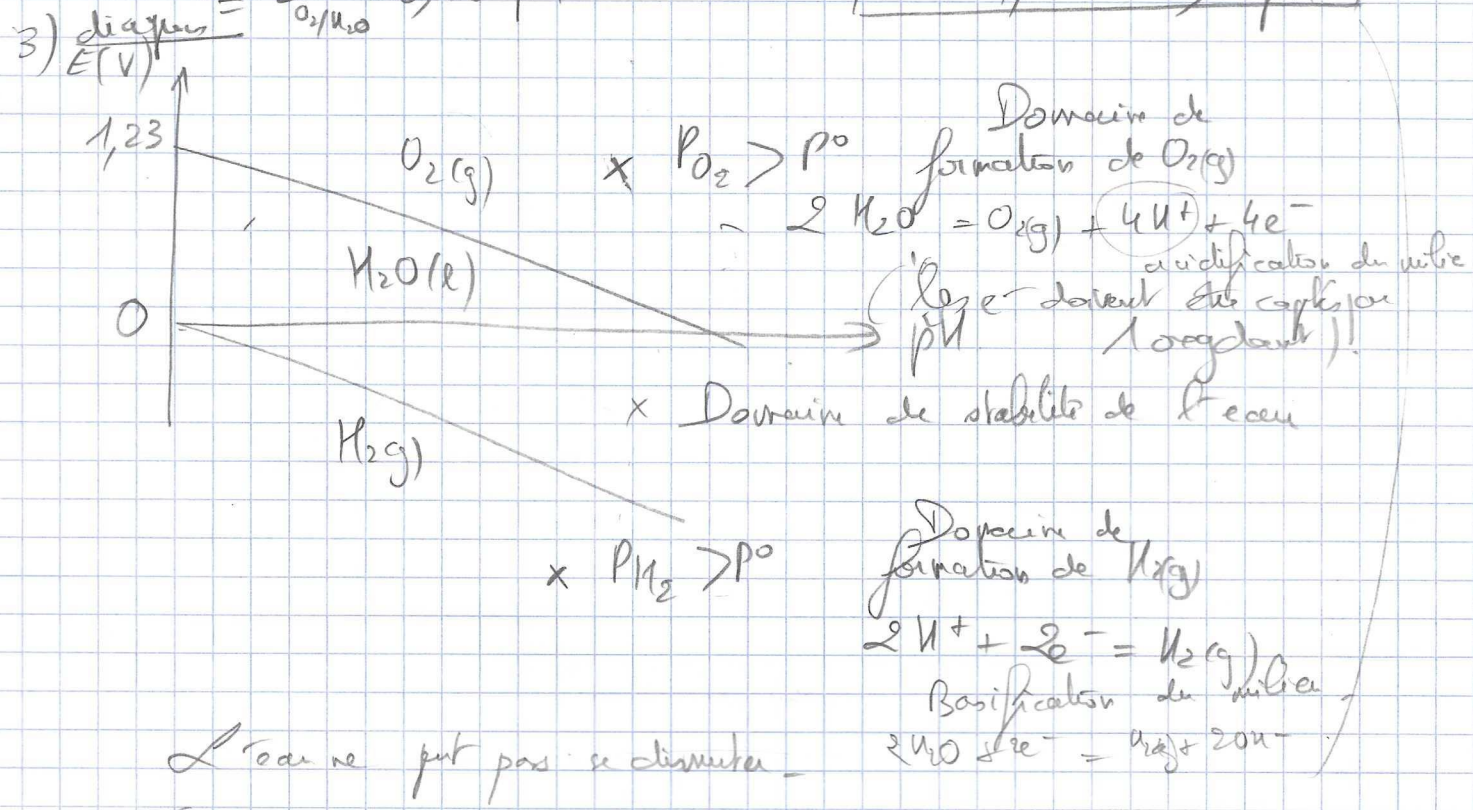 3) diagramme
O2/H2O
E(V)
1,23
O2(g)
H2O(l)
0
pH
H2(g)
× PO2 > P°
Domaine de
formation de O2(g)
- 2 H2O = O2(g) + 4H+ + 4e-
acidification du milieu
(les e- doivent être captés par
1 oxydant)!
× Domaine de stabilité de l'eau
× PH2 > P°
Domaine de
formation de H2(g)
2H+ + 2e- = H2(g)
Basification du milieu
2H2O + 2e- = H2(g) + 2OH-
L'eau ne peut pas se dismuter_